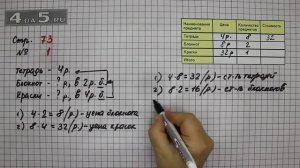 4 АВ 5.RU
Стр. 73
№ 1
Тетрадь - 4р.
Блокнот - ?р, в 2р. б.
Краски - ?р, в 4р. б.
1) 4·2=8(р)-цена блокнота
2) 8·4=32(р)-цена красок
Наименование предмета Цена Количество предметов Стоимость
Тетради 4р. 8 32
Блокнот 8р 2
Краски 32р 1
1) 4·8=32(р)-ст-ть тетрадей
2) 8·2=16(р)-ст-ть блокнотов